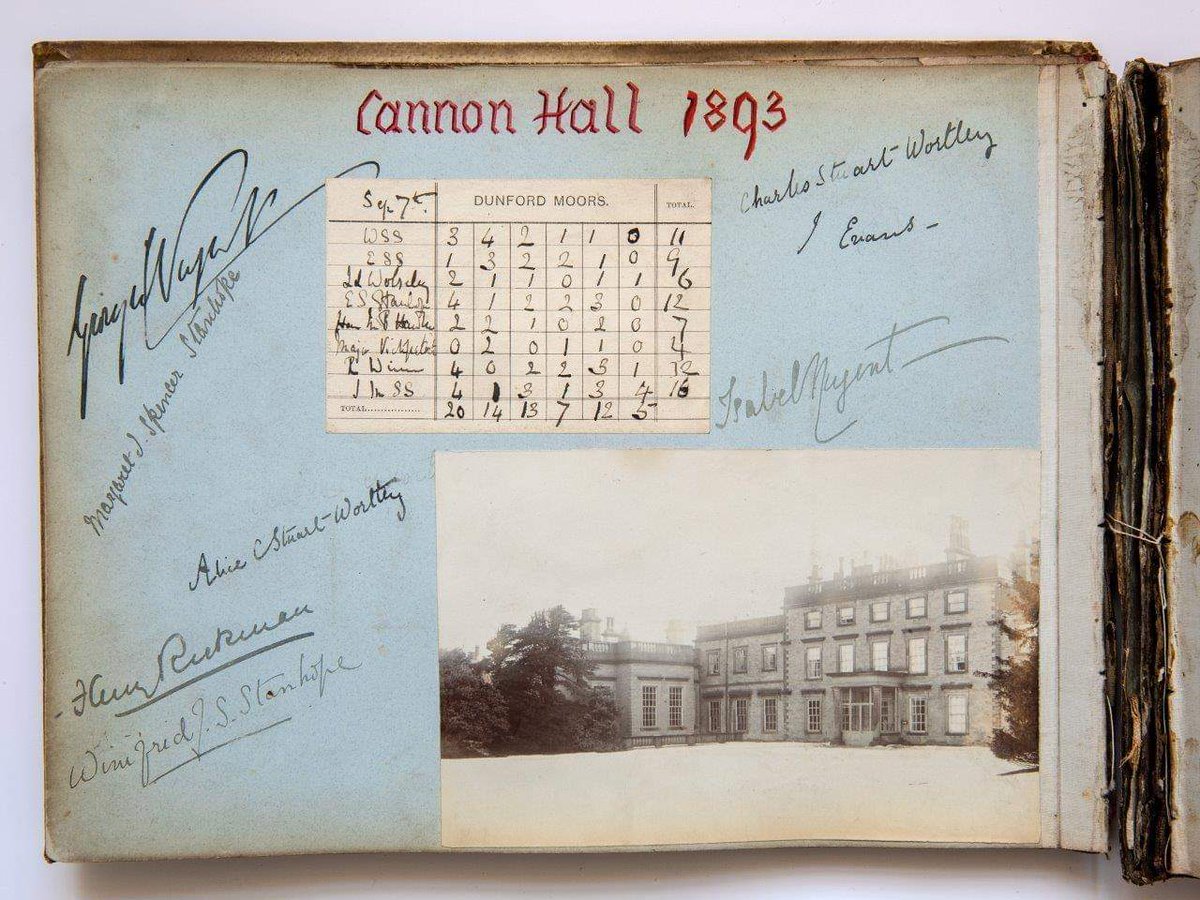 Cannon Hall 1893
Sep 7th. DUNFORD MOORS. TOTAL.
WSS 3 4 2 1 1 0 11
ESS 1 3 2 2 1 0 9
Ld 2 1 1 0 1 1 6
E S Stanhope 4 1 2 2 3 0 12
Hon 2 2 1 0 2 0 7
Major 0 2 0 1 1 0 4
R Winn 4 0 2 2 3 1 12
J M SS 4 1 3 1 3 4 16
TOTAL 20 14 13 7 12 5
Charles Stuart-Wortley
J Evans -
George Nugent
Margaret J. Spencer Stanhope
Isabel Nugent
Alice Stuart-Wortley
- Henry Rickman
Winifred J. S. Stanhope